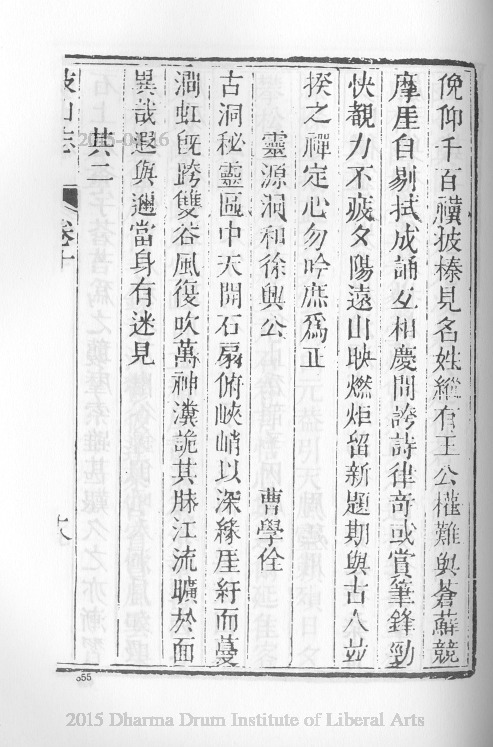 俛仰千百禩披榛見名姓縱有王公權難與蒼蘚競
摩厓自剔拭成誦互相慶間誇詩律奇或賞筆鋒勁
快覩力不疲夕陽遠山映燃炬留新題期與古人並
揆之禪定心勿吟庶為正
靈源洞和徐興公　曹學佺
古洞秘靈區中天開石扇俯峽峭以深緣厓紆而蔓
澗虹旣跨雙谷風復吹萬神瀵詭其脉江流曠於面
異哉遐與邇當身有迷見
其二
鼓山志　卷十　十八
355
2015 Dharma Drum Institute of Liberal Arts